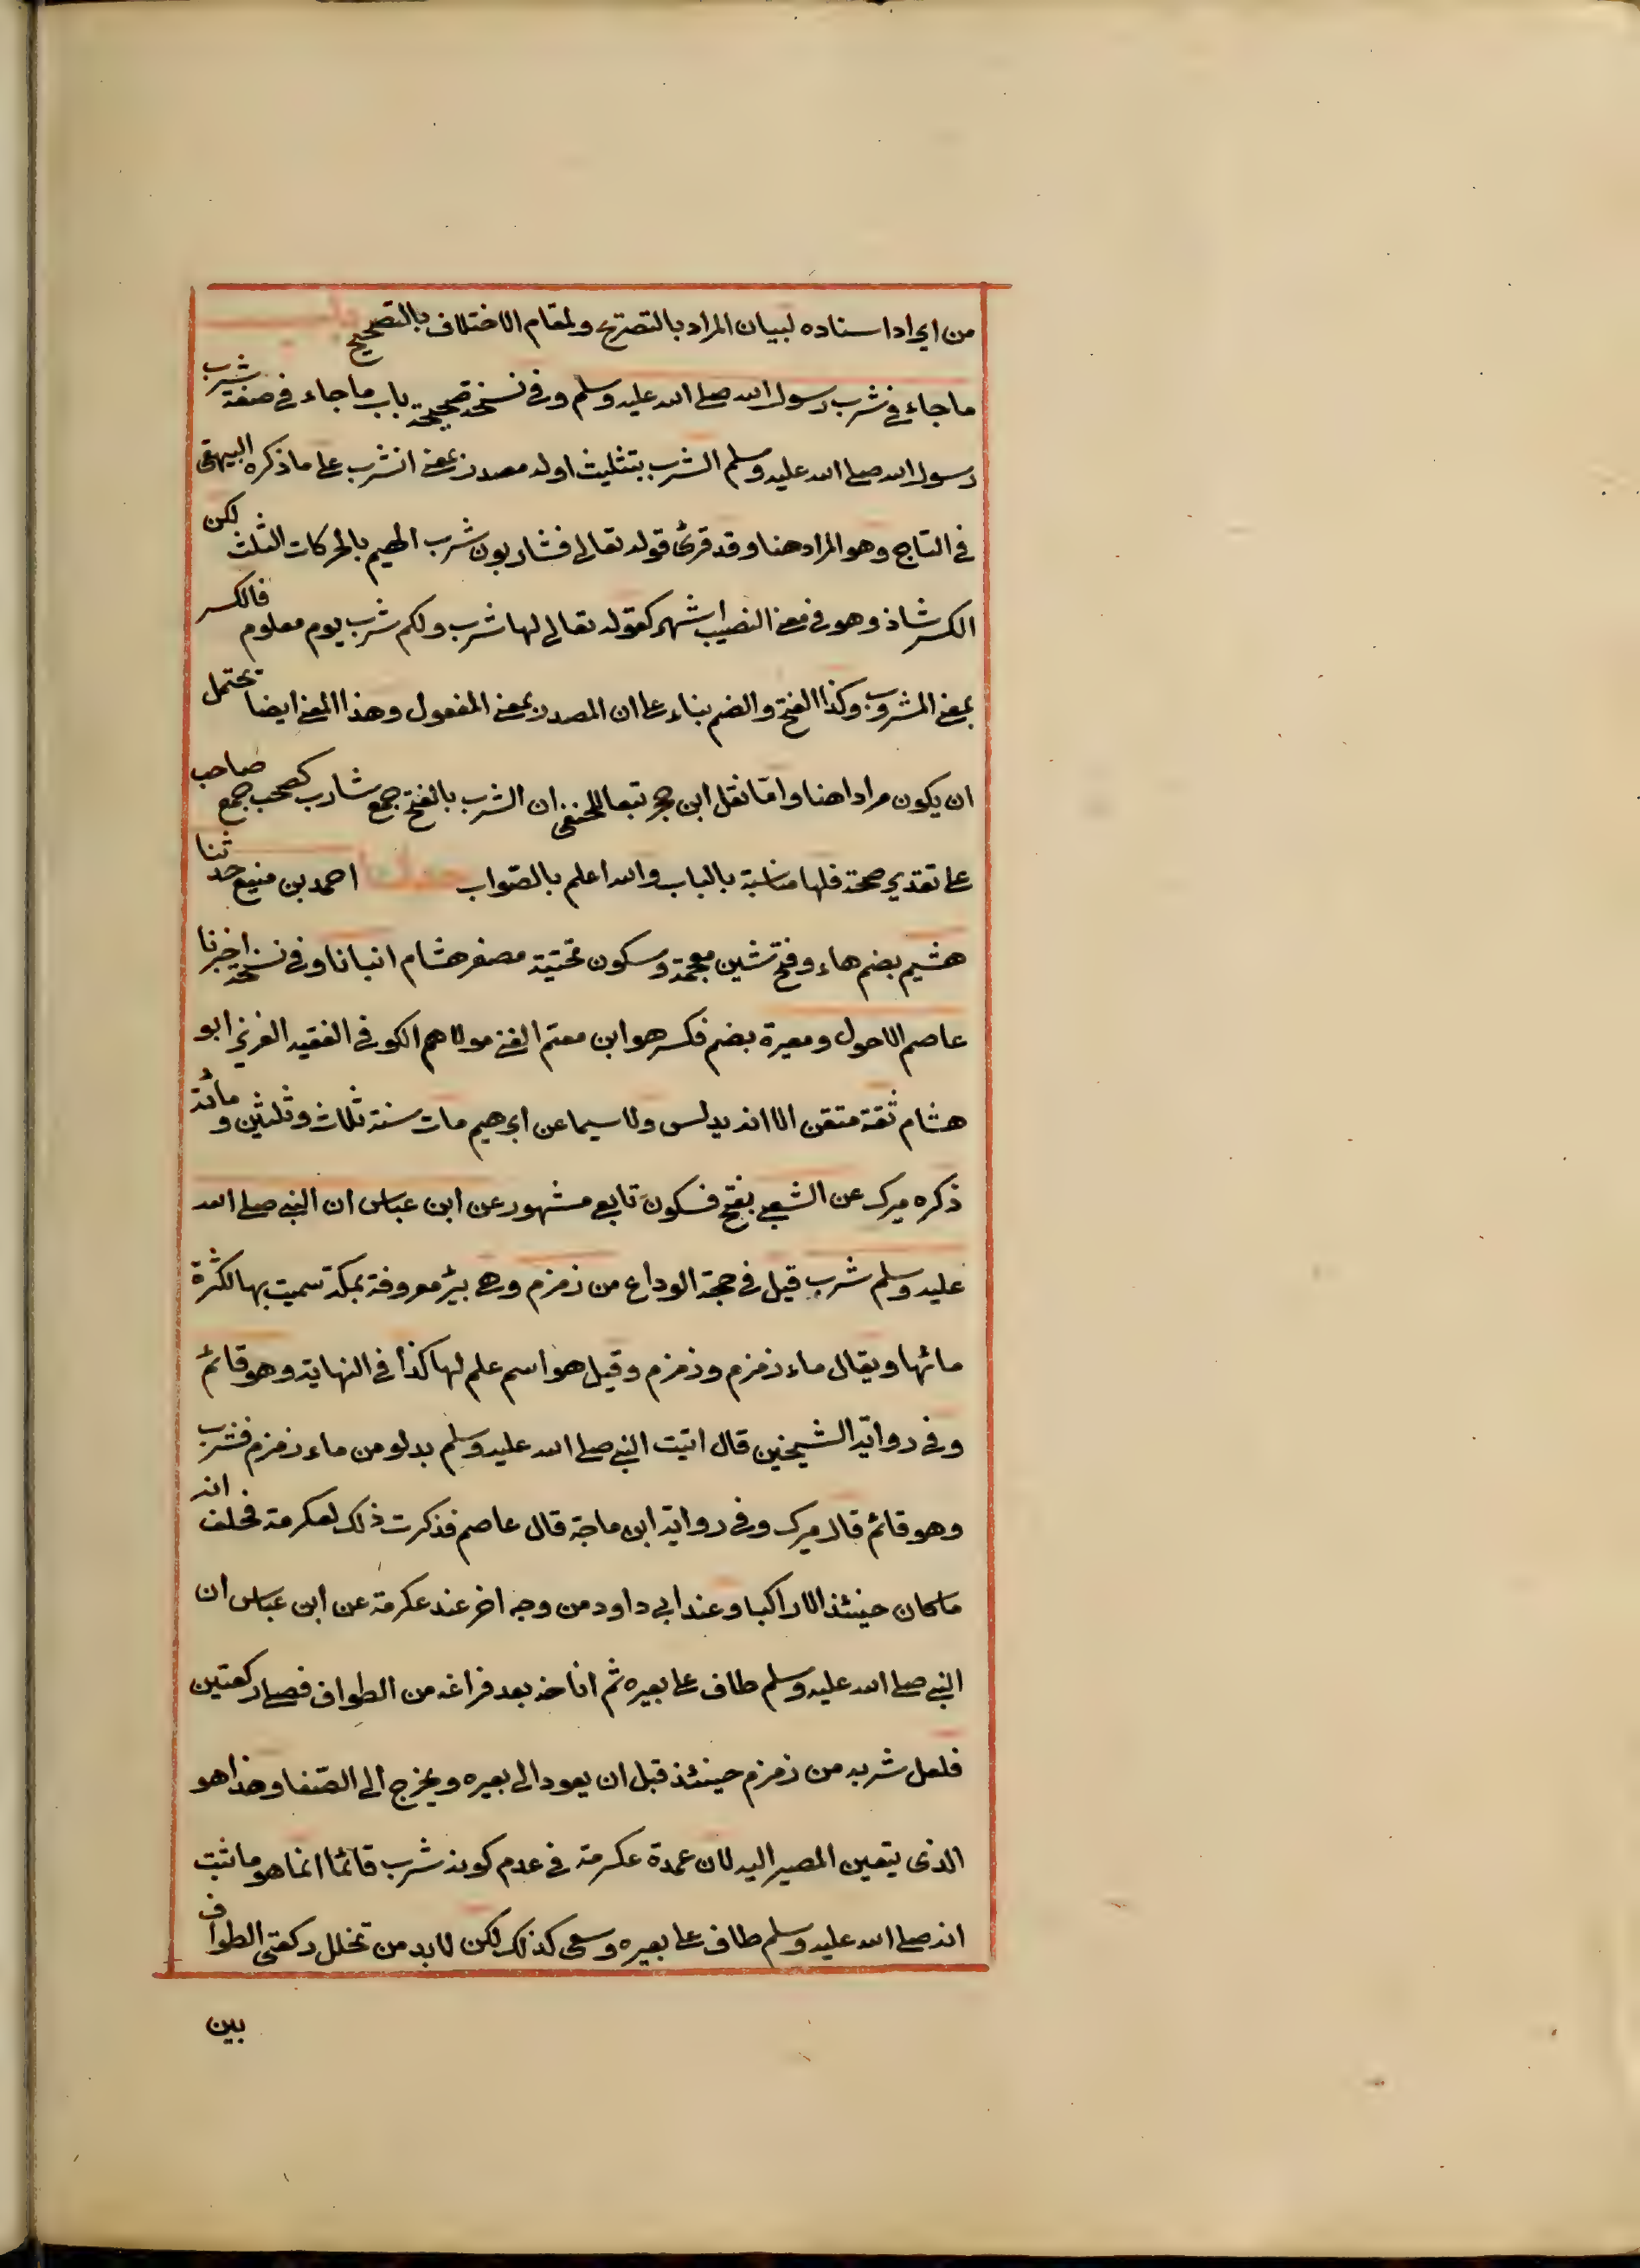 من ايراد اسناده لبيان المراد بالتصريح ولمقام الاختلاف بالتصحيح باب
ما جاء في شرب رسول الله صلى الله عليه وسلم وفي نسخة صحيحة باب ما جاء في صفة شرب
رسول الله صلى الله عليه وسلم الشرب بتثليث اوله مصدر بمعنى انشرب على ما ذكره البيهقي
في التاج وهو المراد هنا وقد قرئ قوله تعالى فشاربون شرب الهيم بالحركات الثلث لكن
الكسر شاذ وهو في معنى النصيب اشهر كقوله تعالى لها شرب ولكم شرب يوم معلوم فالكسر
بمعنى المشروب وكذا الفتح والضم بناء على ان المصدر بمعنى المفعول وهذا المعنى ايضا يحتمل
ان يكون مرادا هنا واما نقل ابن حجر تبعا للحنفي ان الشرب بالفتح جمع شارب كصحب جمع صاحب
على تقدير صحته فلها مناسبة بالباب والله اعلم بالصواب حدثنا احمد بن منيع حدثنا
هشيم بضم هاء وفتح شين معجمة وسكون تحتية مصغر هشام انبانا وفي نسخة اخبرنا
عاصم الاحول ومعيرة بضم فكسر هو ابن معتم الفني مولاهم الكوفي الفقيه الغريز ابو
هشام ثقة متقن الا انه يدلس ولا سيما عن ابرهيم مات سنة ثلاث وثلثين ومائة
ذكره ميرك عن الشعبي بفتح فسكون تابعي مشهور عن ابن عباس ان النبي صلى الله
عليه وسلم شرب قيل في حجة الوداع من زمزم وهي بئر معروفة بمكة سميت بها لكثرة
مائها ويقال ماء زمزم وزمزم وقيل هو اسم علم لها كذا في النهاية وهو قائم
وفي رواية الشيخين قال اتيت النبي صلى الله عليه وسلم بدلو من ماء زمزم فشرب
وهو قائم قال ميرك وفي رواية ابن ماجة قال عاصم فذكرت ذلك لعكرمة فحلف انه
ما كان حينئذ الا راكبا وعند ابي داود من وجه اخر عند عكرمة عن ابن عباس ان
النبي صلى الله عليه وسلم طاف على بعيره ثم اناخه بعد فراغه من الطواف فصلى ركعتين
فلعل شربه من زمزم حينئذ قبل ان يعود الى بعيره ويخرج الى الصفا وهذا هو
الذى يتعين المصير اليه لان عمدة عكرمة في عدم كونه شرب قائما انما هو ما ثبت
انه صلى الله عليه وسلم طاف على بعيره وسعى كذلك لكن لا بد من تخلل ركعتي الطواف
بين